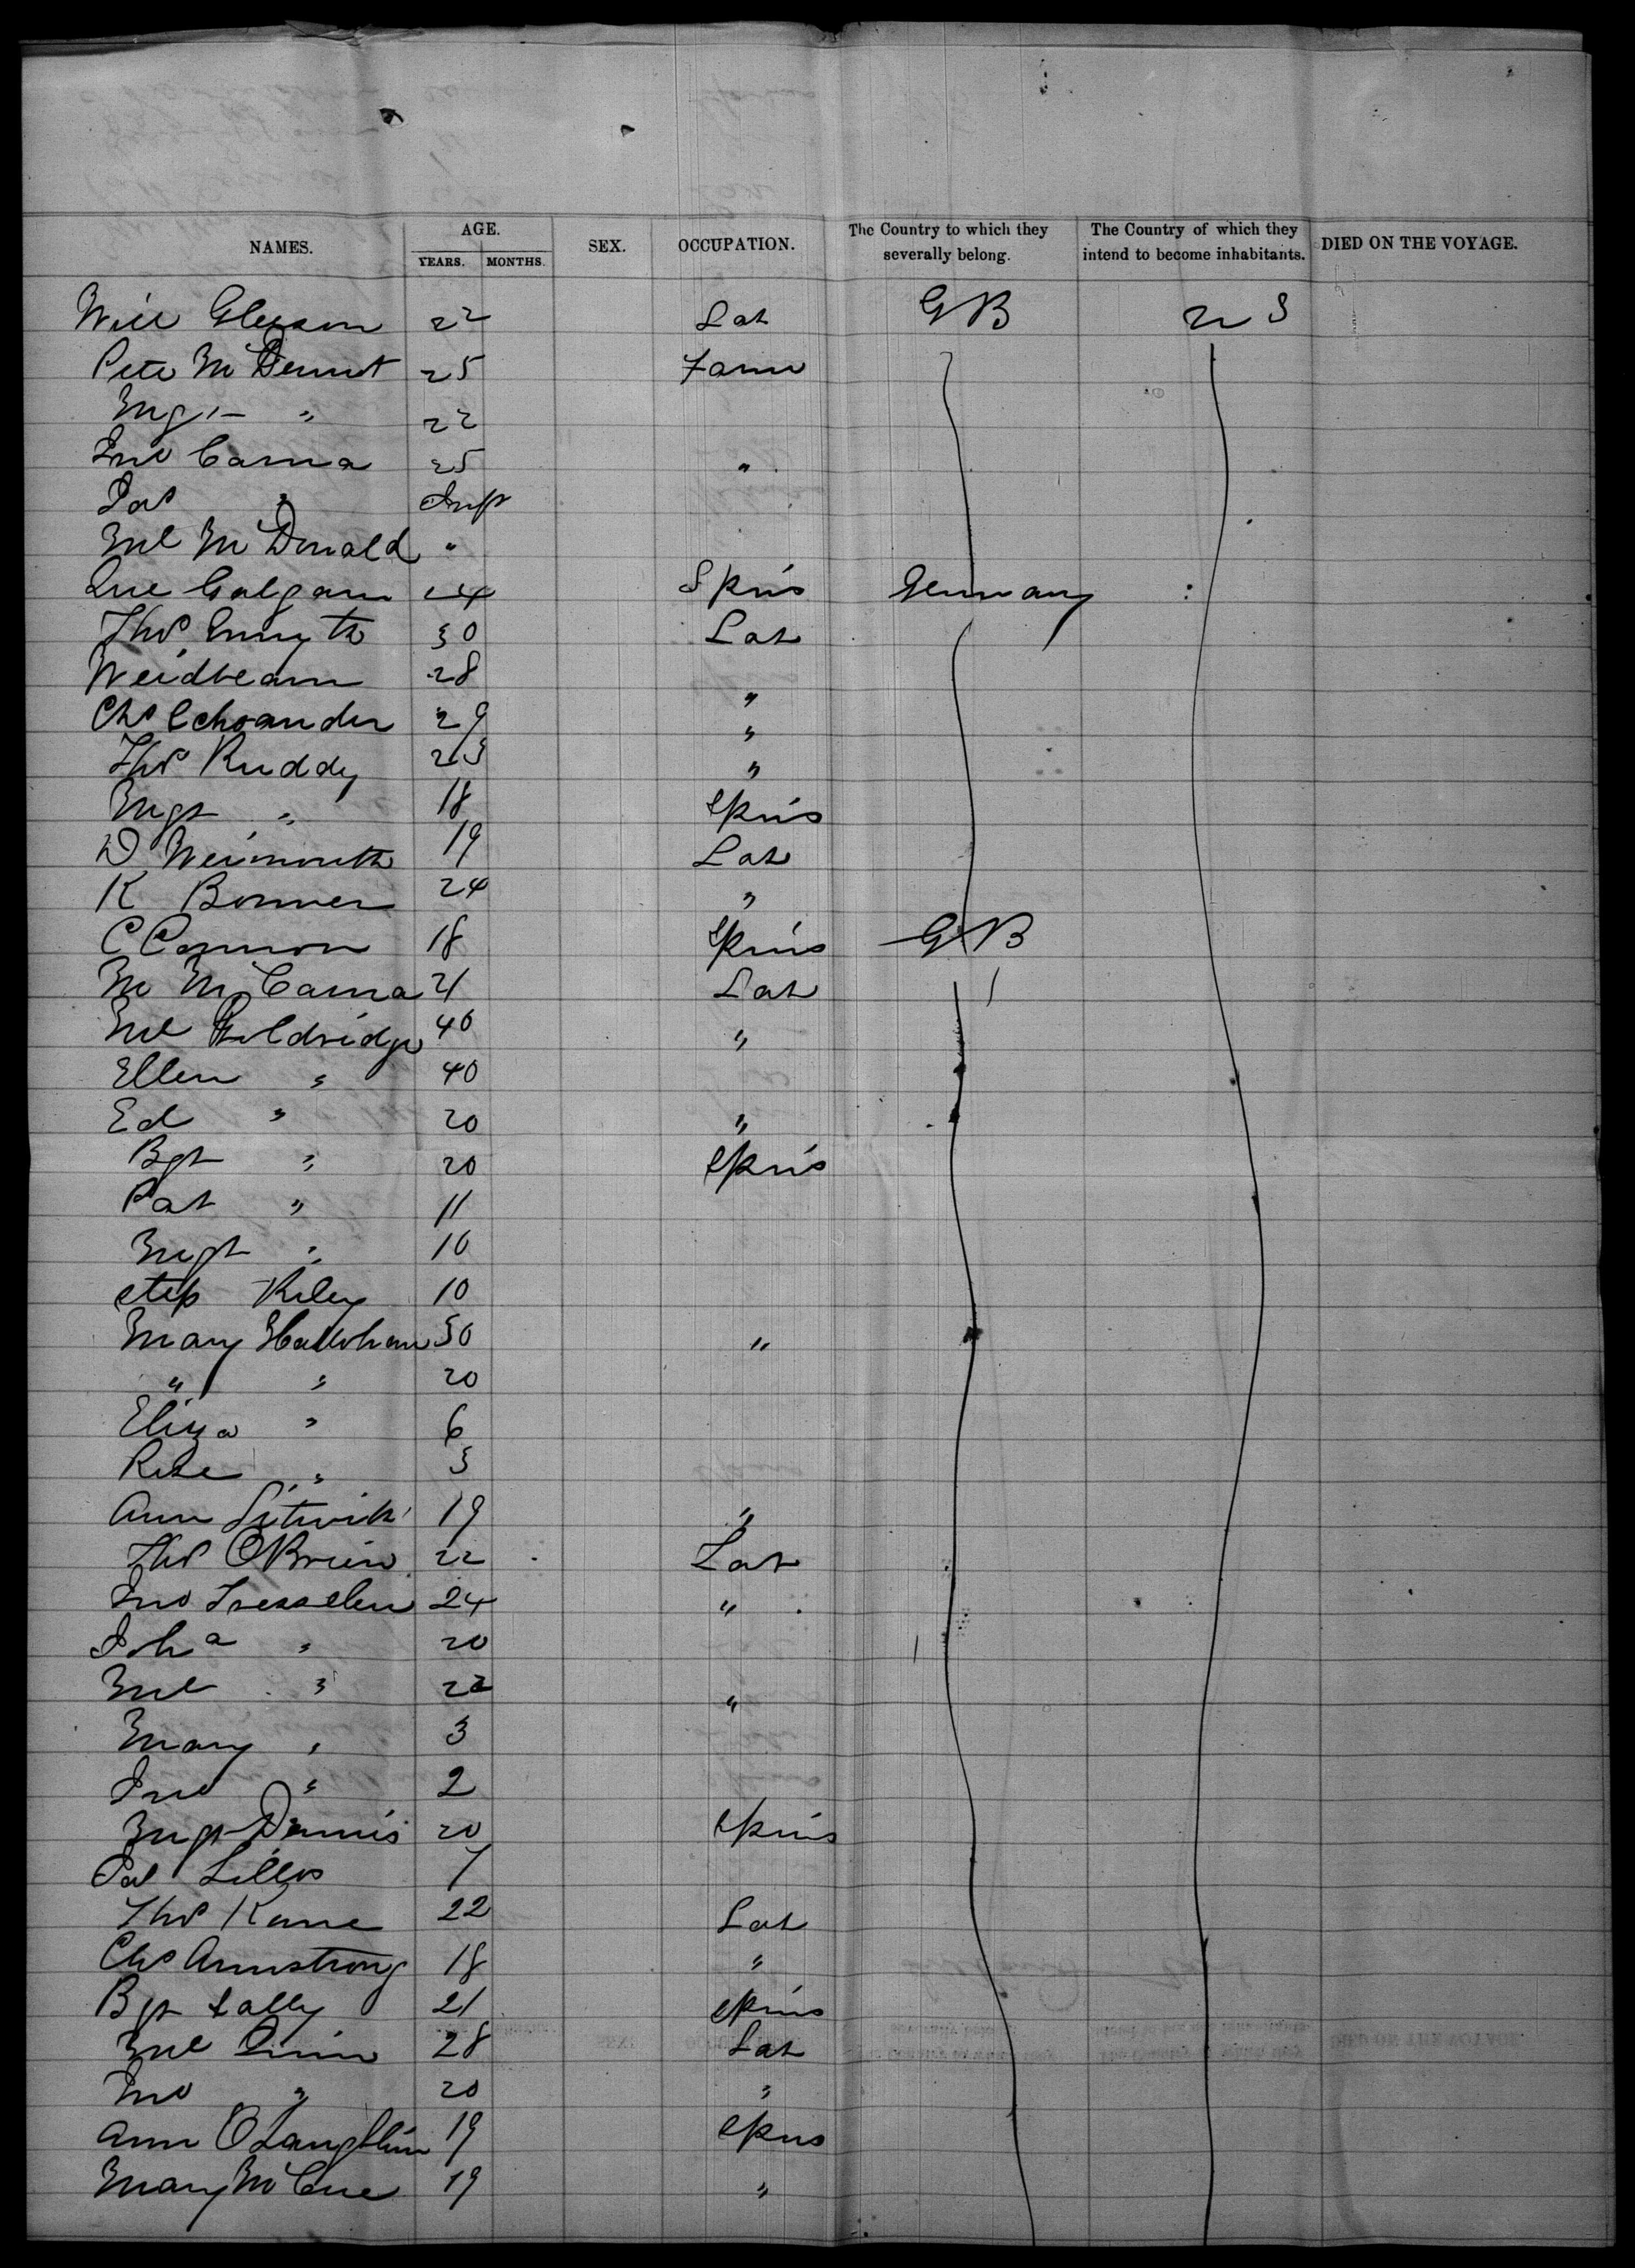 NAMES. AGE. YEARS. MONTHS. SEX. OCCUPATION. The Country to which they severally belong. The Country of which they intend to become inhabitants. DIED ON THE VOYAGE.
Will Gleeson 22 Lab GB US
Pete McDermot 25 Farmr
Mgt " 22
Jno Canna 25 "
Pat " Inft
Ml McDonald "
Galgann 24 Spns Germany
Thos Smyth 30 Lab
Weidbeam 28 "
Chs Schoander 29 "
Thos Ruddy 23 "
Mgt " 18 Spns
D Weimouth 19 Lab
K Bonner 24 "
C Connon 18 Spns GB
M McCanna 21 Lab
Ml Holdridge 40 "
Ellen " 40
Ed " 20 "
Bgt " 20 Spns
Pat " 11
Mgt " 10
Step Riley 10
Mary Hallohan 50 "
" " 20
Eliza " 6
Rose " 3
Ann 19 "
Thos OBrien 22 Lab
Jno Tresselen 24 "
Joha " 20
Ml " 22 "
Mary " 3
Jno " 2
Mgt Dennis 20 Spns
Pat 7
Thos Kane 22 Lab
Chs Armstrong 18 "
Bgt Lally 21 Spns
Ml Quinn 28 Lab
Jno " 20 "
Ann OLaughlin 19 Spns
Mary McCue 19 "